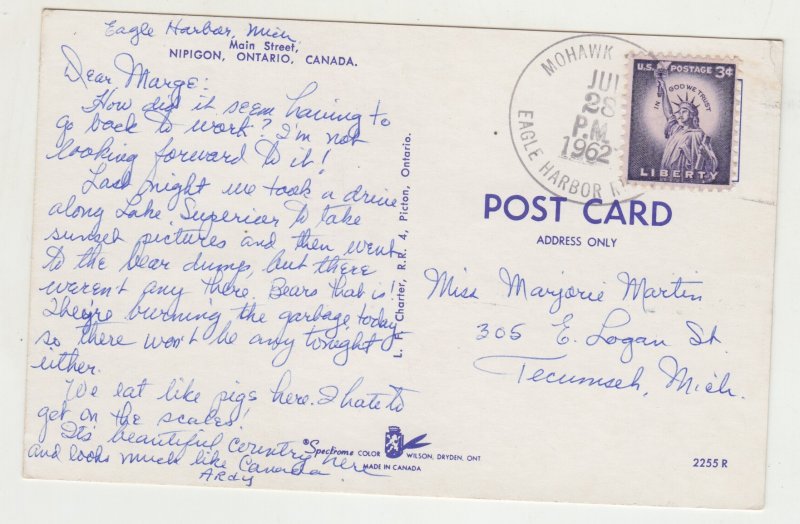 Eagle Harbor, Mich
Main Street,
NIPIGON, ONTARIO, CANADA.
Dear Marge:
How did it seem having to
go back to work? I'm not
looking forward to it!
Last night we took a drive
along Lake Superior to take
sunset pictures and then went
to the bear dump, but there
weren't any there. Bears that is!
They're burning the garbage today
so there won't be any tonight
either.
We eat like pigs here. I hate to
get on the scales!
Its beautiful country here
and looks much like Canada.
Ardy
L. F. Charter, R.R. 4, Picton, Ontario.
®Spectrome COLOR WILSON, DRYDEN, ONT.
MADE IN CANADA
MOHAWK
JUL
28
P.M.
1962
EAGLE HARBOR
U.S. POSTAGE 3¢
IN GOD WE TRUST
LIBERTY
POST CARD
ADDRESS ONLY
Miss Marjorie Martin
305 E. Logan St.
Tecumseh, Mich.
2255 R